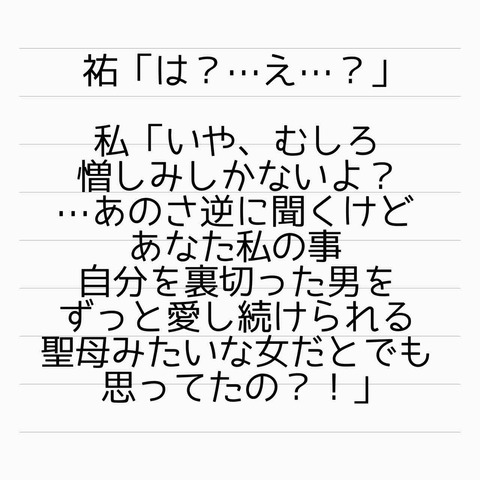 祐「は？…え…？」
私「いや、むしろ
憎しみしかないよ？
…あのさ逆に聞くけど
あなた私の事
自分を裏切った男を
ずっと愛し続けられる
聖母みたいな女だとでも
思ってたの？！」